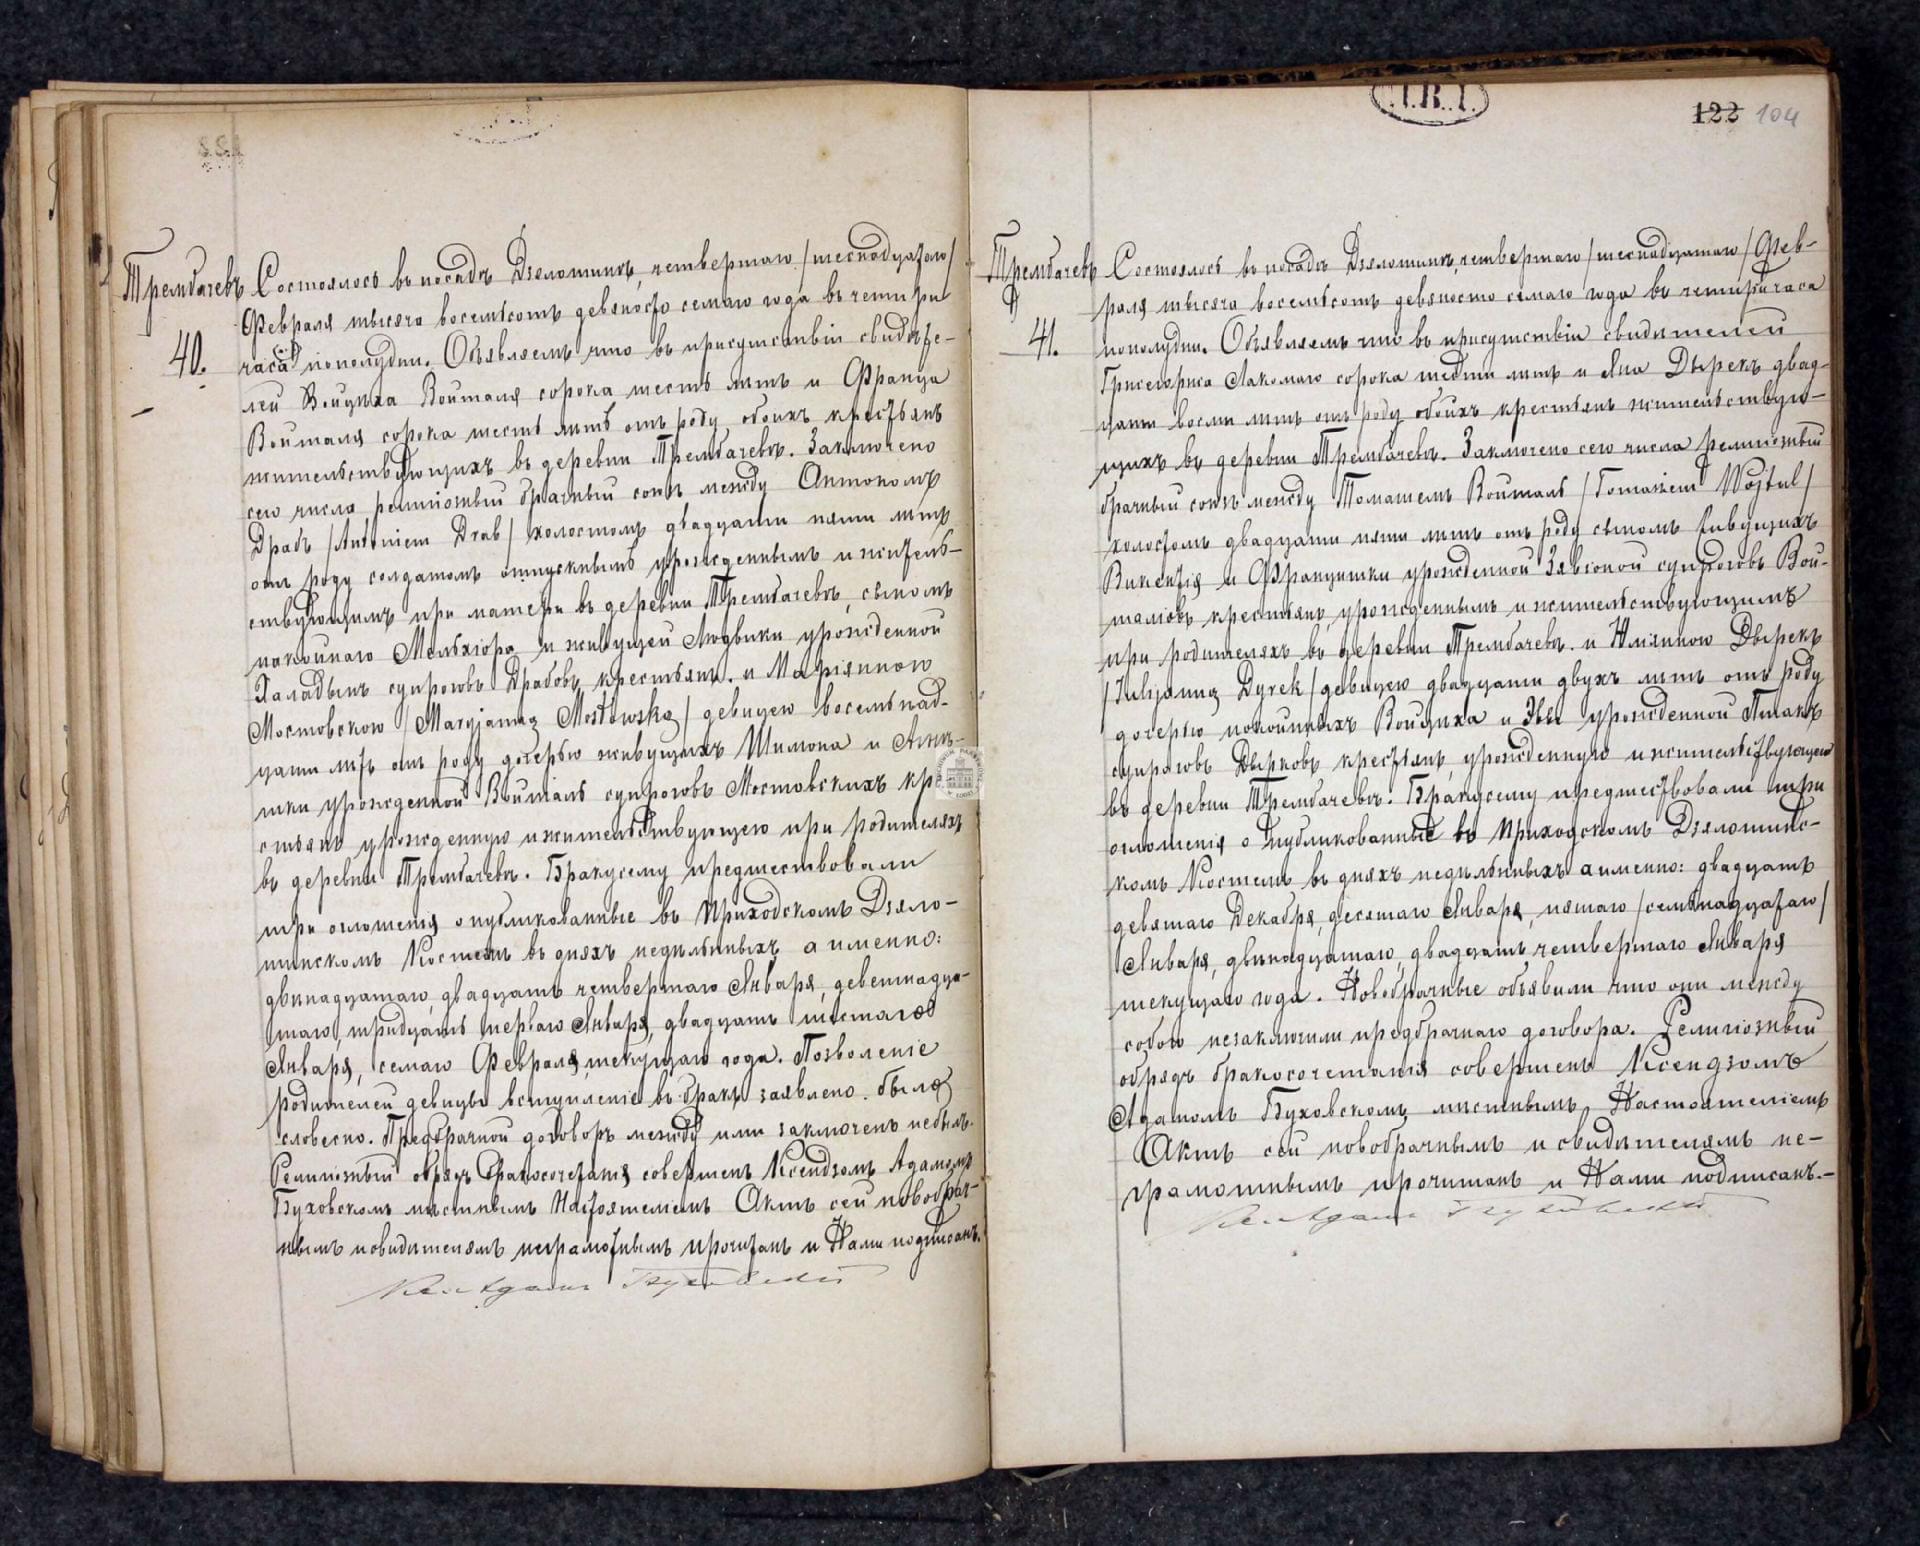 Трембачевъ
40.
Состоялось въ посадѣ Дзялошинѣ, четвертаго /шеснадцатаго/
Февраля тысяча восемьсотъ девяносто семаго года въ четыри
часа пополудни. Объявляемъ что въ присутствіи свидѣте-
лей Войцѣха Войталя сорока шесть лѣтъ и Франца
Войталя сорока шесть лѣтъ отъ роду, обоихъ крестьянъ
жительствующихъ въ деревни Трембачевѣ. Заключено
сего числа религіозный брачный союзъ между Антономъ
Драбъ /Antoniem Drab/ холостомъ двадцати пяти лѣтъ
отъ роду солдатомъ отпускнымъ урожденнымъ и житель-
ствующимъ при матери въ деревни Трембачевѣ, сыномъ
покойнаго Мельхіора и живущей Людвики урожденной
Халадынъ супруговъ Драбовъ крестьянъ. и Маріянною
Мостовскою /Maryjanną Mostowską/ девицею восемьнад-
цати лѣтъ отъ роду дочерью живущихъ Шимона и Агнѣ-
шки урожденной Войталь супруговъ Мостовскихъ кре
стьянъ урожденную и жительствующею при родителяхъ
въ деревни Трембачевѣ. Браку сему предшествовали
три оглошенія опубликованные въ Приходскомъ Дзяло-
шинскомъ Костелѣ въ дняхъ недѣльныхъ а именно:
двѣнадцатаго, двадцать четвертаго Января, девятнадца-
таго, тридцать перваго Января, двадцать шестаго
Января, семаго Февраля, текущаго года. Позволеніе
родителей девицы вступленіе въ бракъ заявлено было
словесно. Предбрачной договоръ между ими заключенъ небылъ.
Религіозный обрядъ бракосочетанія совершенъ Ксендзомъ Адамомъ
Буховскомъ мѣстнымъ Настоятелемъ Актъ сей новобрач-
нымъ и свидителямъ неграмотнымъ прочитанъ и Нами подписанъ.
Кс. Адамъ Буховскій
122 104
Трембачевъ
41.
Состоялось въ посадѣ Дзялошинѣ, четвертаго /шеснадцатаго/ Фев-
раля тысяча восемьсотъ девяносто семаго года въ четыри часа
пополудни. Объявляемъ что въ присутствіи свидителей
Гржегоржа Лакомаго сорока шести лѣтъ и Яна Дырекъ двад-
цати восми лѣтъ отъ роду обоихъ крестьянъ жительствую-
щихъ въ деревни Трембачевѣ. Заключено сего числа религіозный
брачный союзъ между Томашемъ Войталь /Tomaszem Wojtal/
холостомъ двадцати пяти лѣтъ отъ роду сыномъ живущихъ
Викентія и Францишки урожденной супруговъ Вой-
талювъ крестьянъ, урожденнымъ и жительствующимъ
при родителяхъ въ деревни Трембачевѣ. и Юліянною Дырекъ
/Julijanną Dyrek/ девицею двадцати двухъ лѣтъ отъ роду
дочерью покойныхъ Войцѣха и Эвы урожденной Птакъ
супруговъ Дырковъ крестьянъ, урожденную и жительствующею
въ деревни Трембачевѣ. Браку сему предшествовали три
оглошенія опубликованные въ Приходскомъ Дзялошинс-
комъ Костелѣ въ дняхъ недѣльныхъ а именно: двадцать
девятаго Декабря, десятаго Января, пятаго /семьнадцатаго/
Января, двѣнадцатаго, двадцать четвертаго Января
текущаго года. Новобрачные объявили что они между
собою незаключили предбрачнаго договора. Религіозный
обрядъ бракосочетанія совершенъ Ксендзомъ
Адамомъ Буховскомъ мѣстнымъ Настоятелемъ
Актъ сей новобрачнымъ и свидителямъ не-
грамотнымъ прочитанъ и Нами подписанъ.-
Кс. Адамъ Буховскій